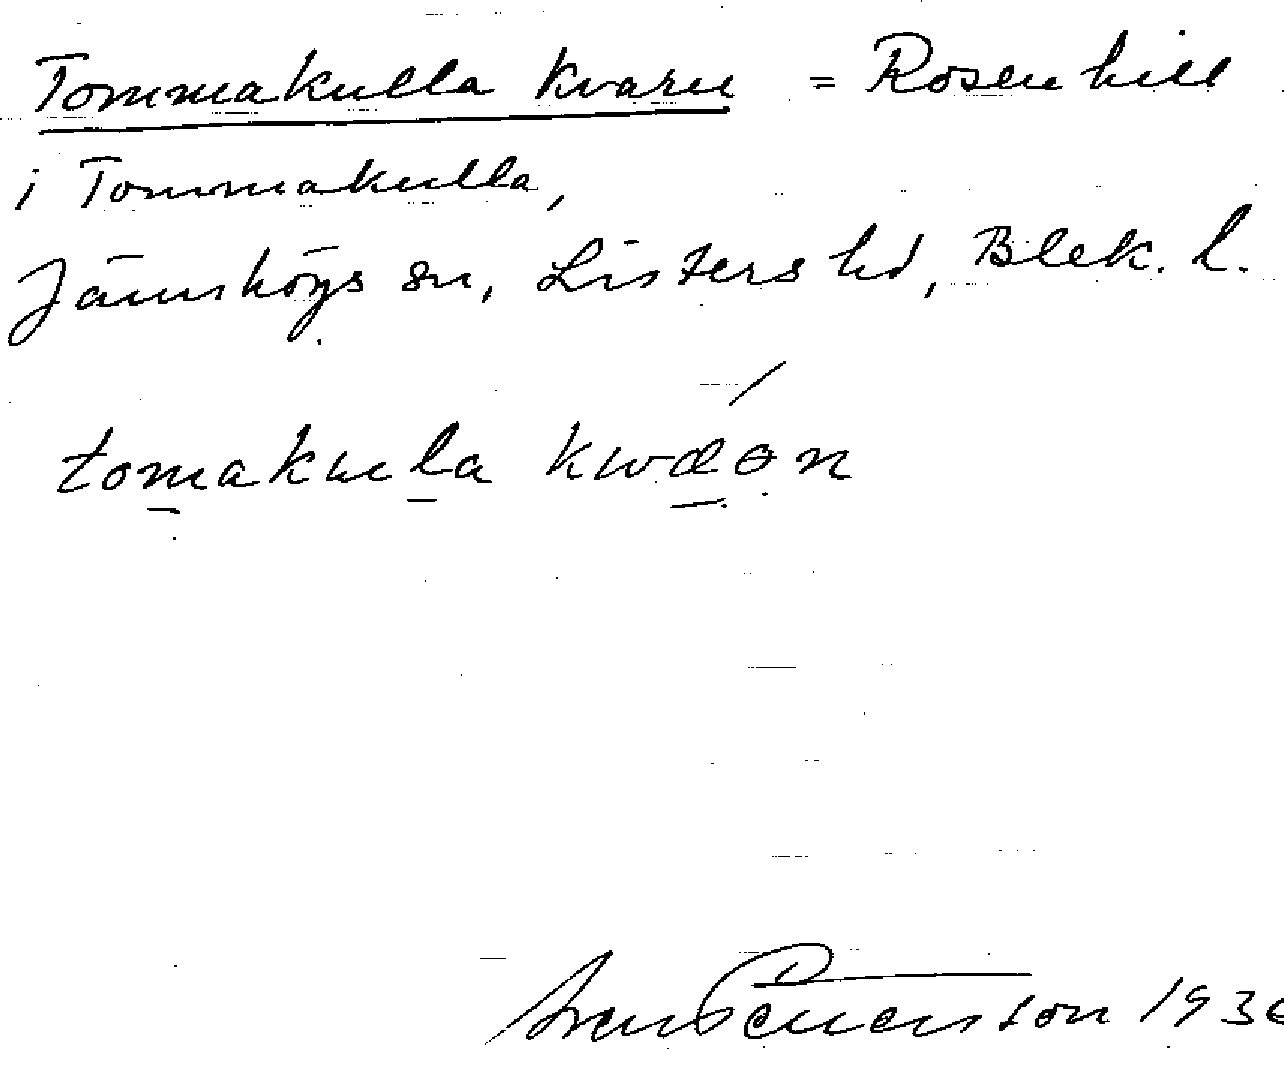 Tommakulla kvarn = Rosenhill
i Tommakulla,
Jämshögs sn, Listers hd, Blek. l.
tomakula kwæən
Sven Benson 1936